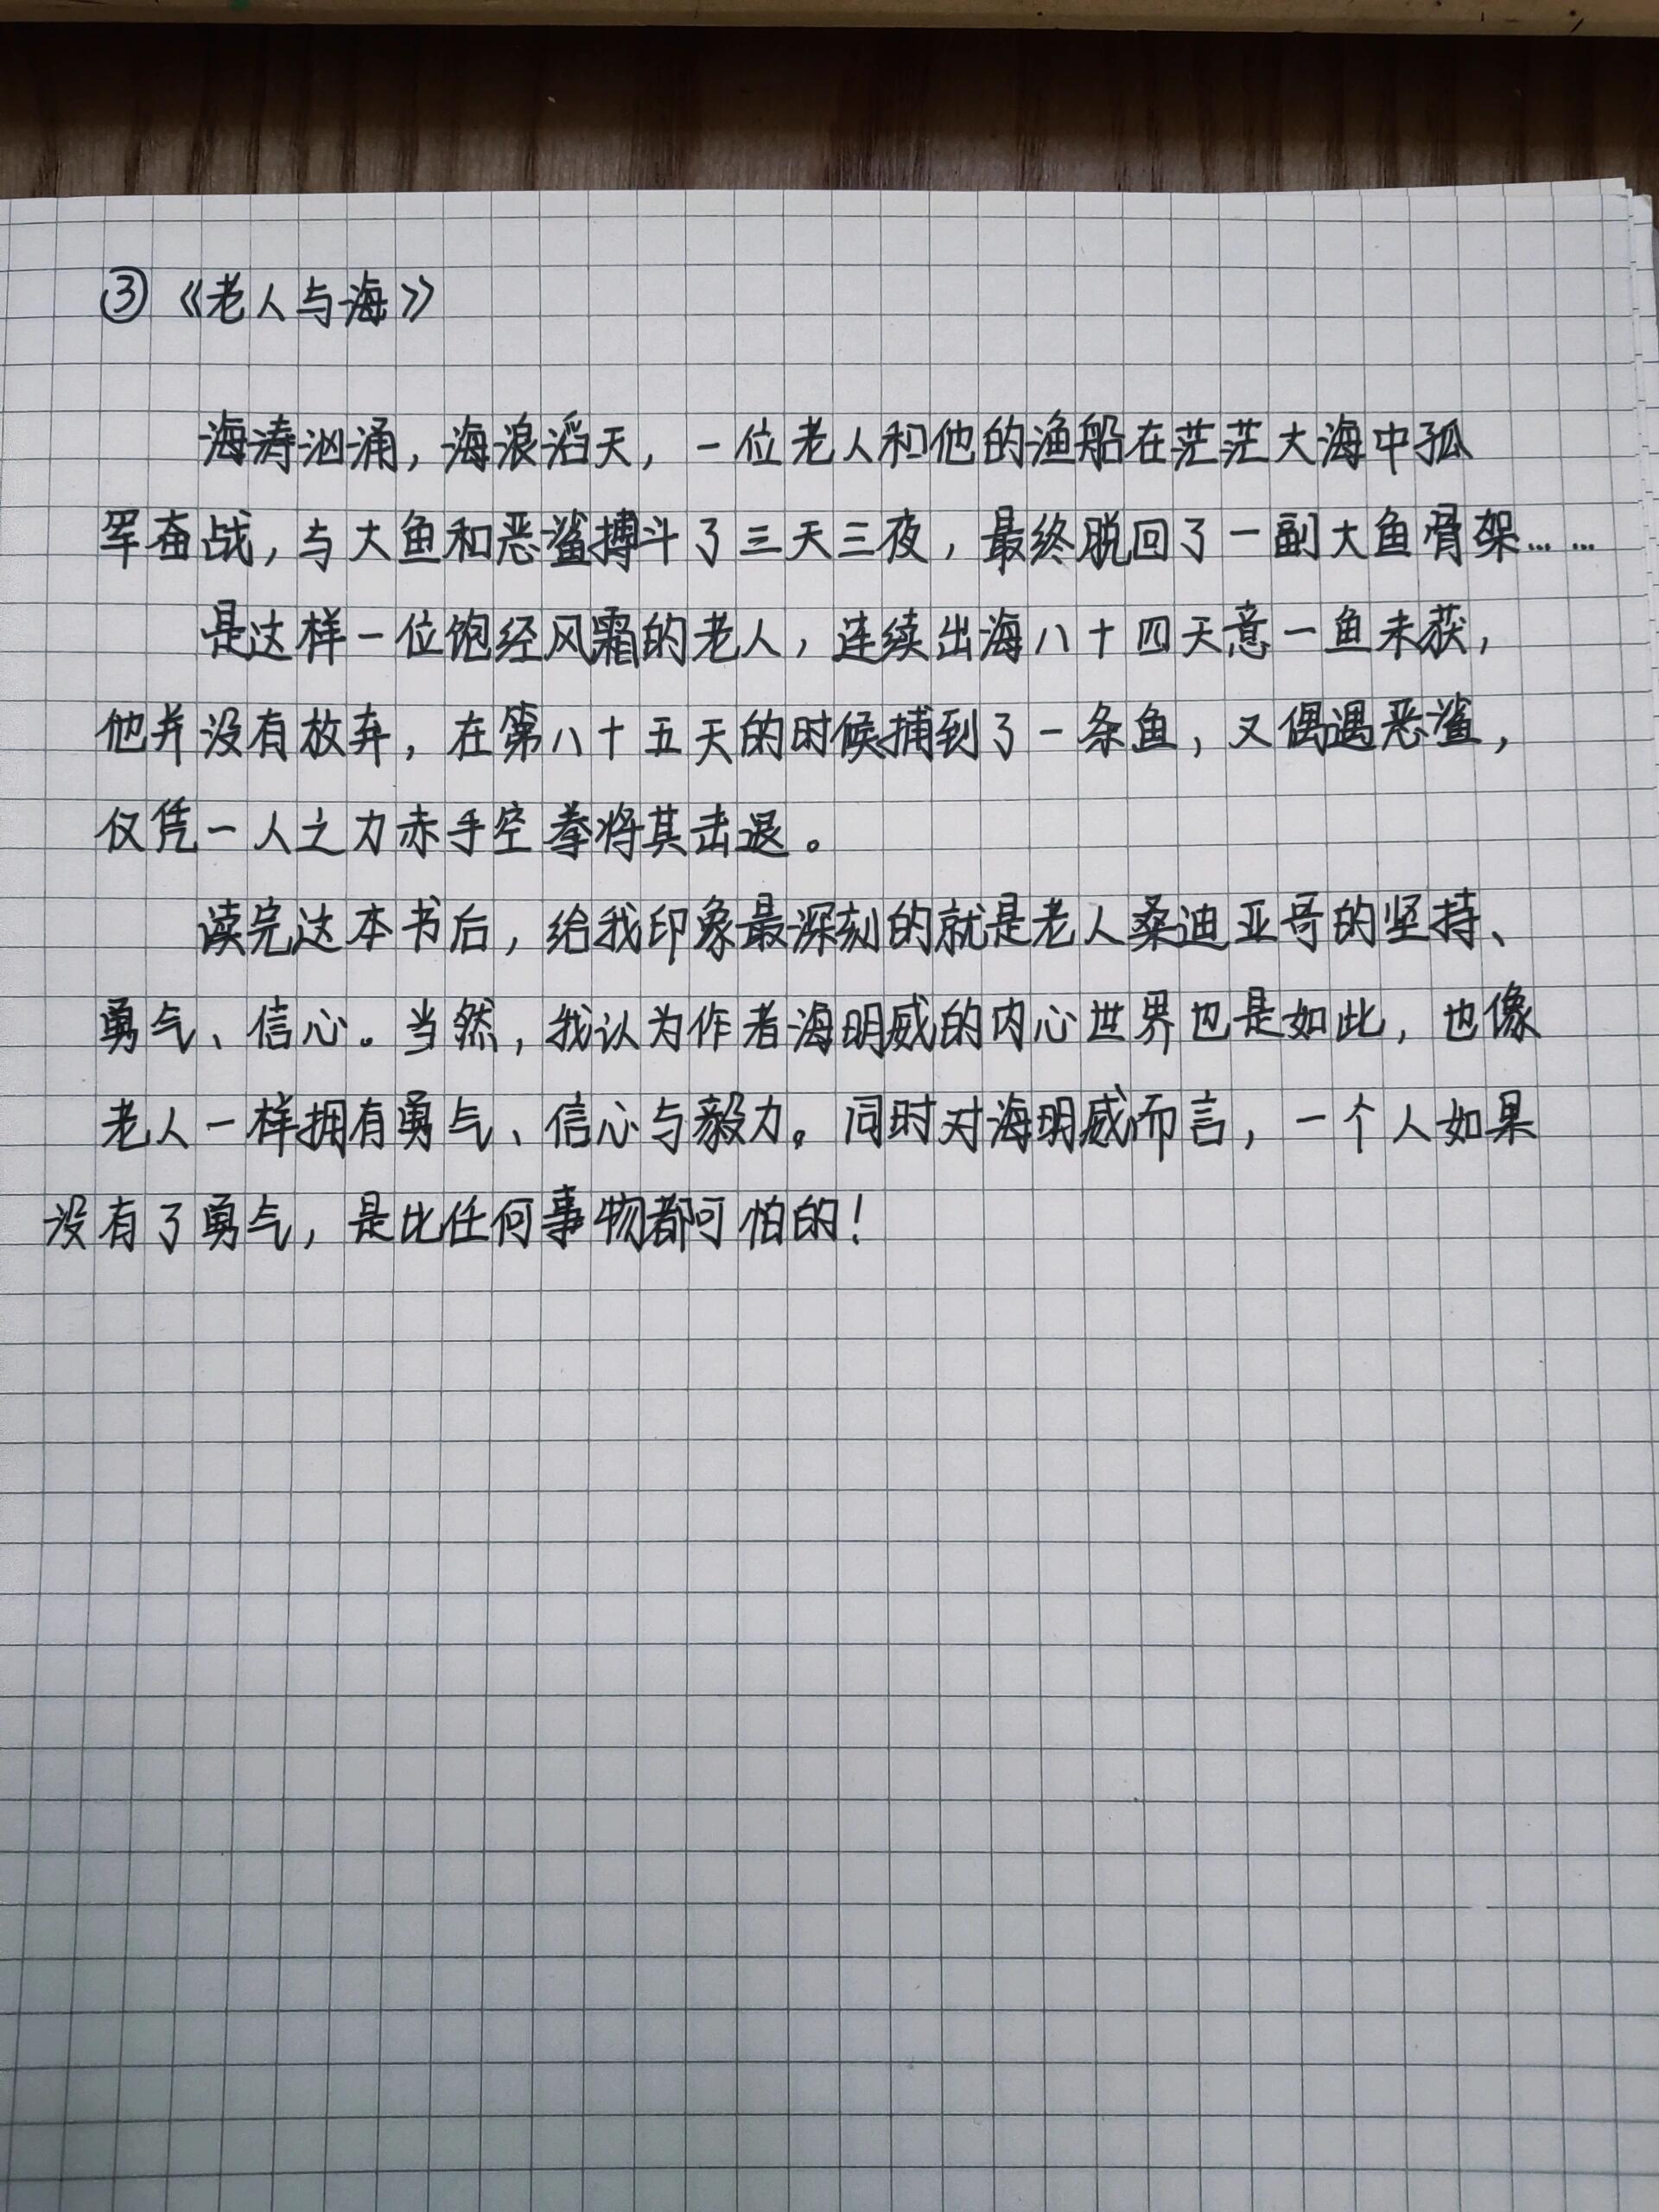 ③《老人与海》
海涛汹涌，海浪滔天，一位老人和他的渔船在茫茫大海中孤
军奋战，与大鱼和恶鲨搏斗了三天三夜，最终脱回了一副大鱼骨架……
是这样一位饱经风霜的老人，连续出海八十四天意一鱼未获，
他并没有放弃，在第八十五天的时候捕到了一条鱼，又偶遇恶鲨，
仅凭一人之力赤手空拳将其击退。
读完这本书后，给我印象最深刻的就是老人桑迪亚哥的坚持、
勇气、信心。当然，我认为作者海明威的内心世界也是如此，也像
老人一样拥有勇气、信心与毅力。同时对海明威而言，一个人如果
没有了勇气，是比任何事物都可怕的！